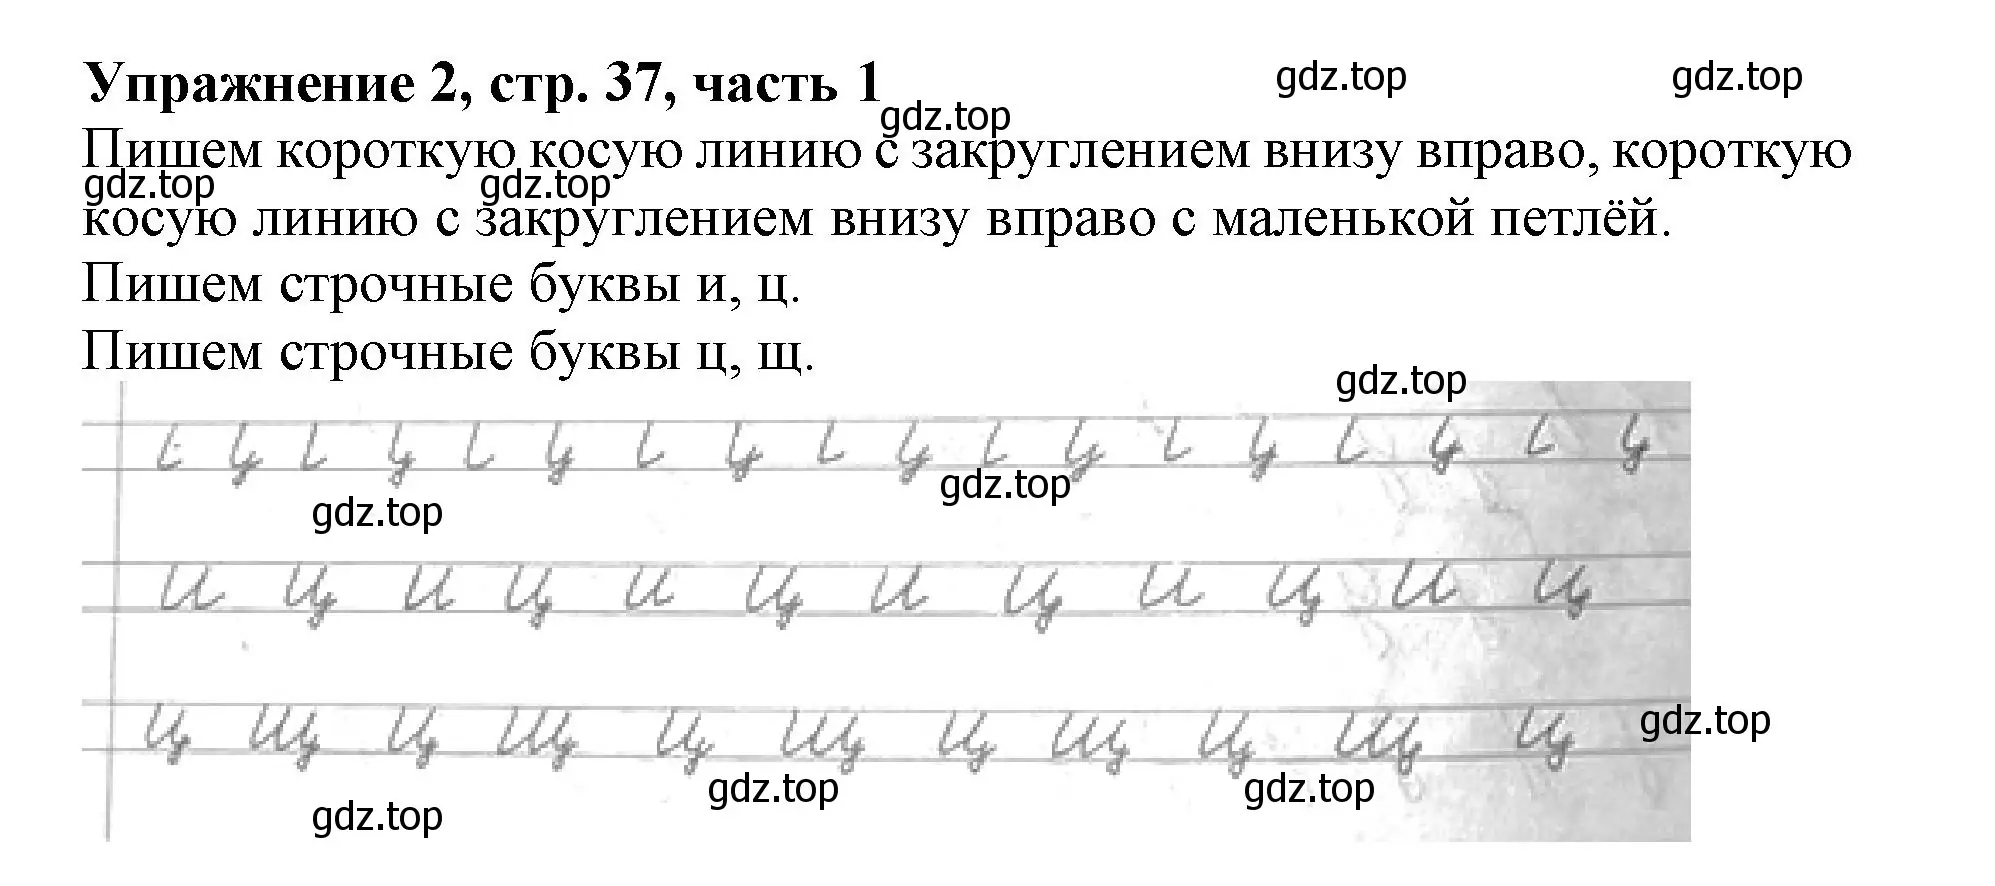 Упражнение 2, стр. 37, часть 1
gdz.top gdz.top
gdz.top
Пишем короткую косую линию с закруглением внизу вправо, короткую
gdz.top gdz.top
косую линию с закруглением внизу вправо с маленькой петлёй.
Пишем строчные буквы и, ц.
Пишем строчные буквы ц, щ.
gdz.top
gdz.top gdz.top
и ц и ц и ц и ц и ц и ц
ц щ ц щ ц щ ц щ ц щ ц
gdz.top
gdz.top gdz.top
gdz.top